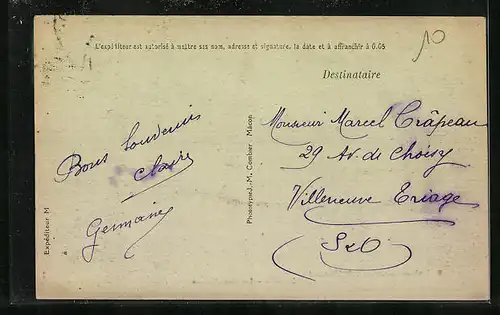 L'expéditeur est autorisé à mettre ses nom, adresse et signature, la date et à affranchir à 0.05
10
Destinataire
Bons Souvenirs
Claire
Germaine
Expéditeur M
à
Phototypie J.-M. Combier Mâcon
Monsieur Marcel Crâpeau
29 Av. de Choisy
Villeneuve Triage
S&O